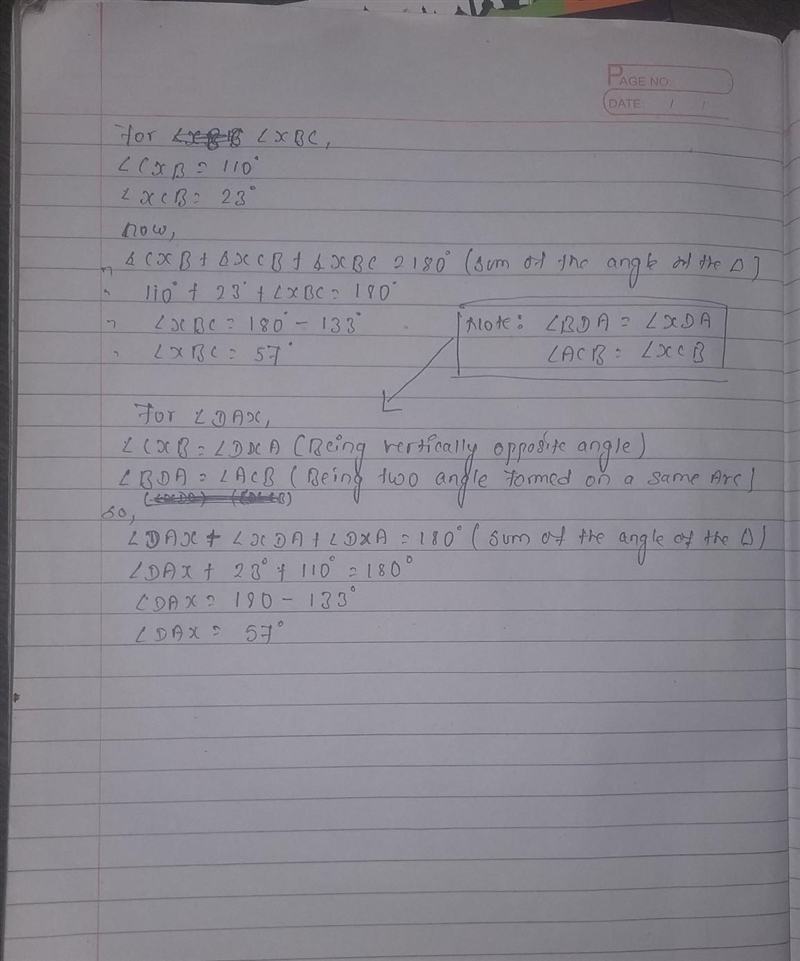 PAGE NO:
DATE: / /
For ∠XBC,
∠CXB = 110°
∠XCB = 23°
Now,
∠CXB + ∠XCB + ∠XBC = 180° (Sum of the angle of the Δ)
110° + 23° + ∠XBC = 180°
∠XBC = 180° - 133°
∠XBC = 57°
Note: ∠BDA = ∠XDA
∠ACB = ∠XCB
For ∠DAX,
∠CXB = ∠DXA (Being vertically opposite angle)
∠BDA = ∠ACB (Being two angle formed on a same Arc)
So,
∠DAX + ∠XDA + ∠DXA = 180° (Sum of the angle of the Δ)
∠DAX + 23° + 110° = 180°
∠DAX = 180 - 133°
∠DAX = 57°